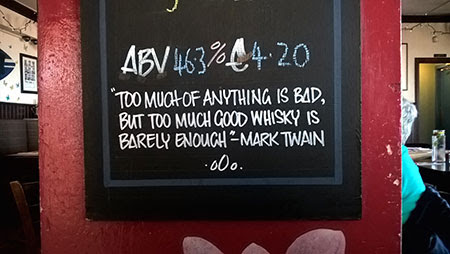 ABV 463% £4.20
"TOO MUCH OF ANYTHING IS BAD,
BUT TOO MUCH GOOD WHISKY IS
BARELY ENOUGH"-MARK TWAIN